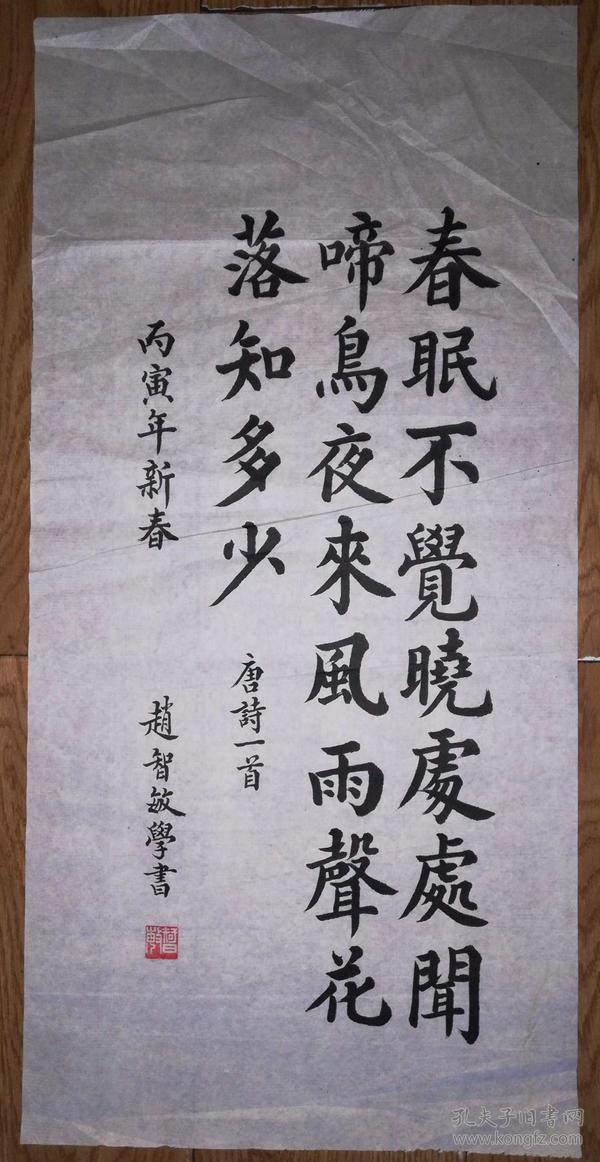 春眠不覺曉處處聞
啼鳥夜來風雨聲花
落知多少
唐詩一首
丙寅年新春
趙智敏學書
智敏
孔夫子旧书网
www.kongfz.com